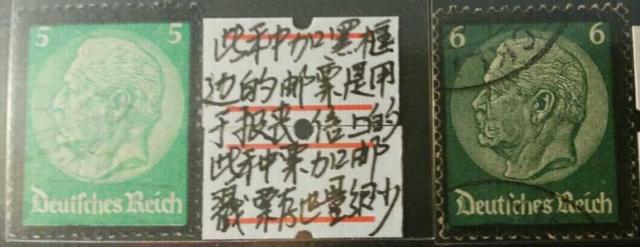 5 5
Deutsches Reich
此种加黑框
边的邮票是用
于报丧信上的
此种票加邮
戳票存世量很少
6 6
Deutsches Reich